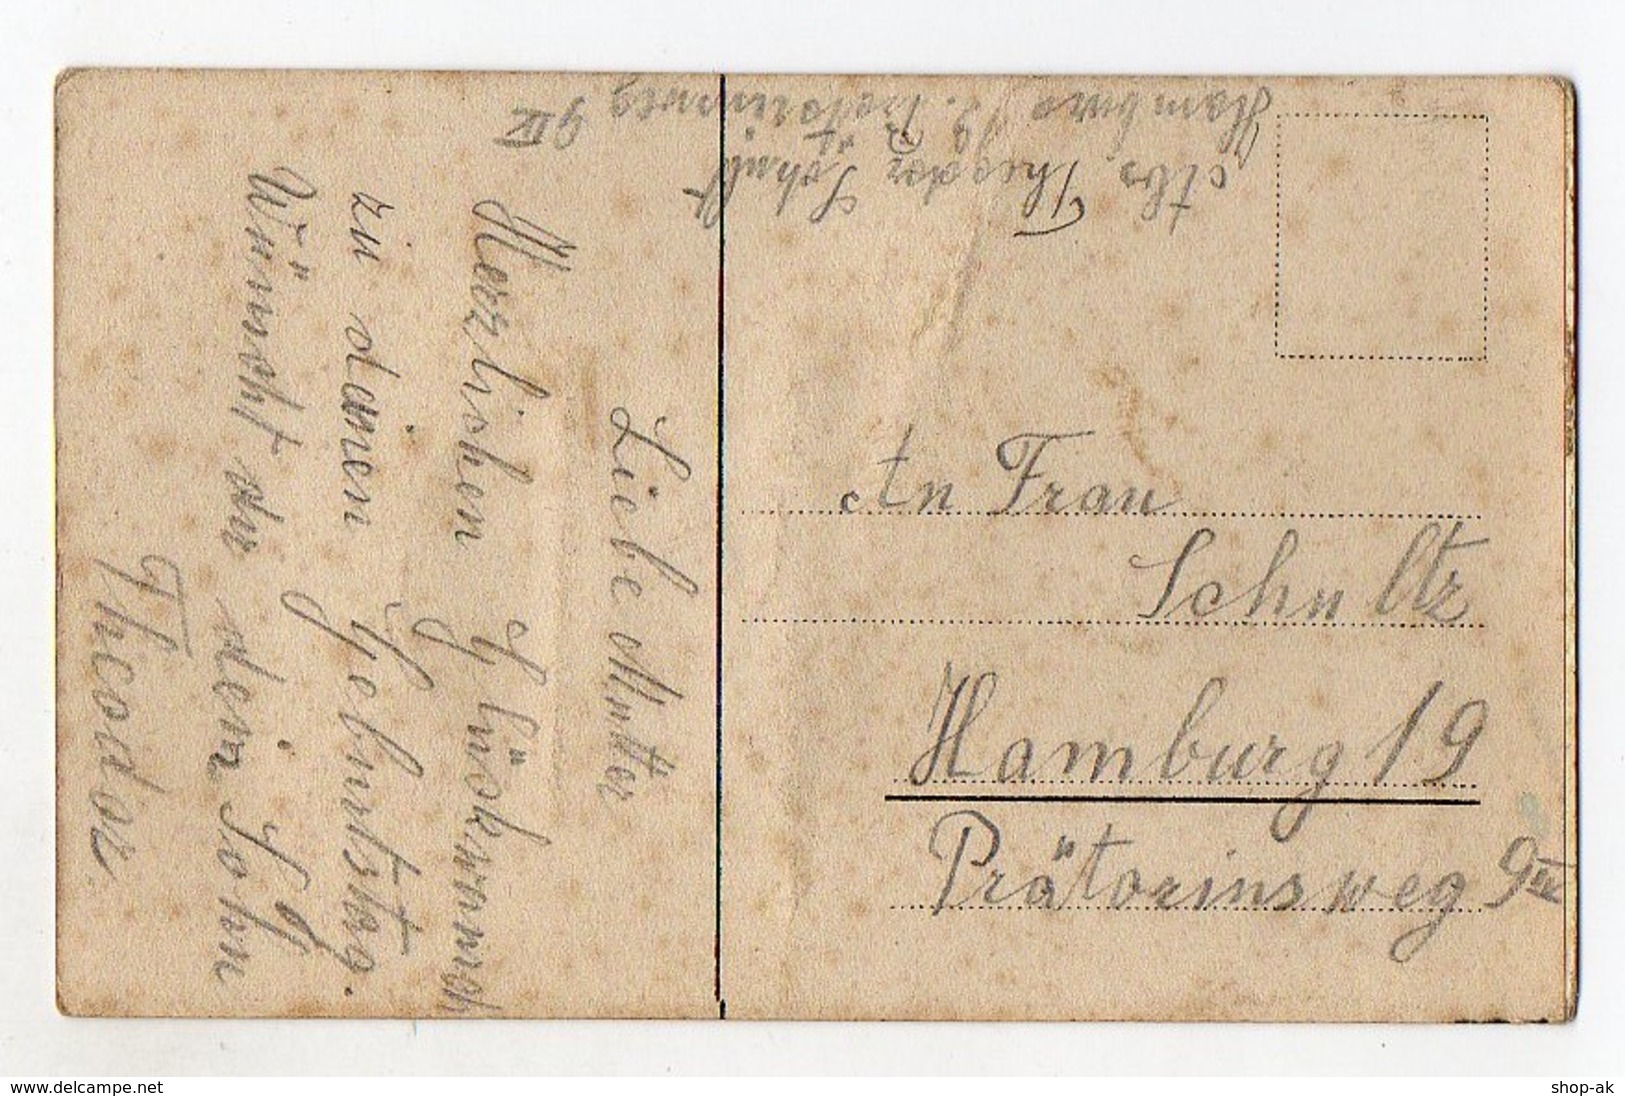 Abs. Theodor Schult
Hamburg 19. Prätoriusweg 9 III
Liebe Mutter
Herzlichen Glückwunsch
zu deinen Geburtstag.
Wünscht dir dein Sohn
Theodor.
An Frau
Schultz
Hamburg 19
Prätoriusweg 9 III
www.delcampe.net
shop-ak